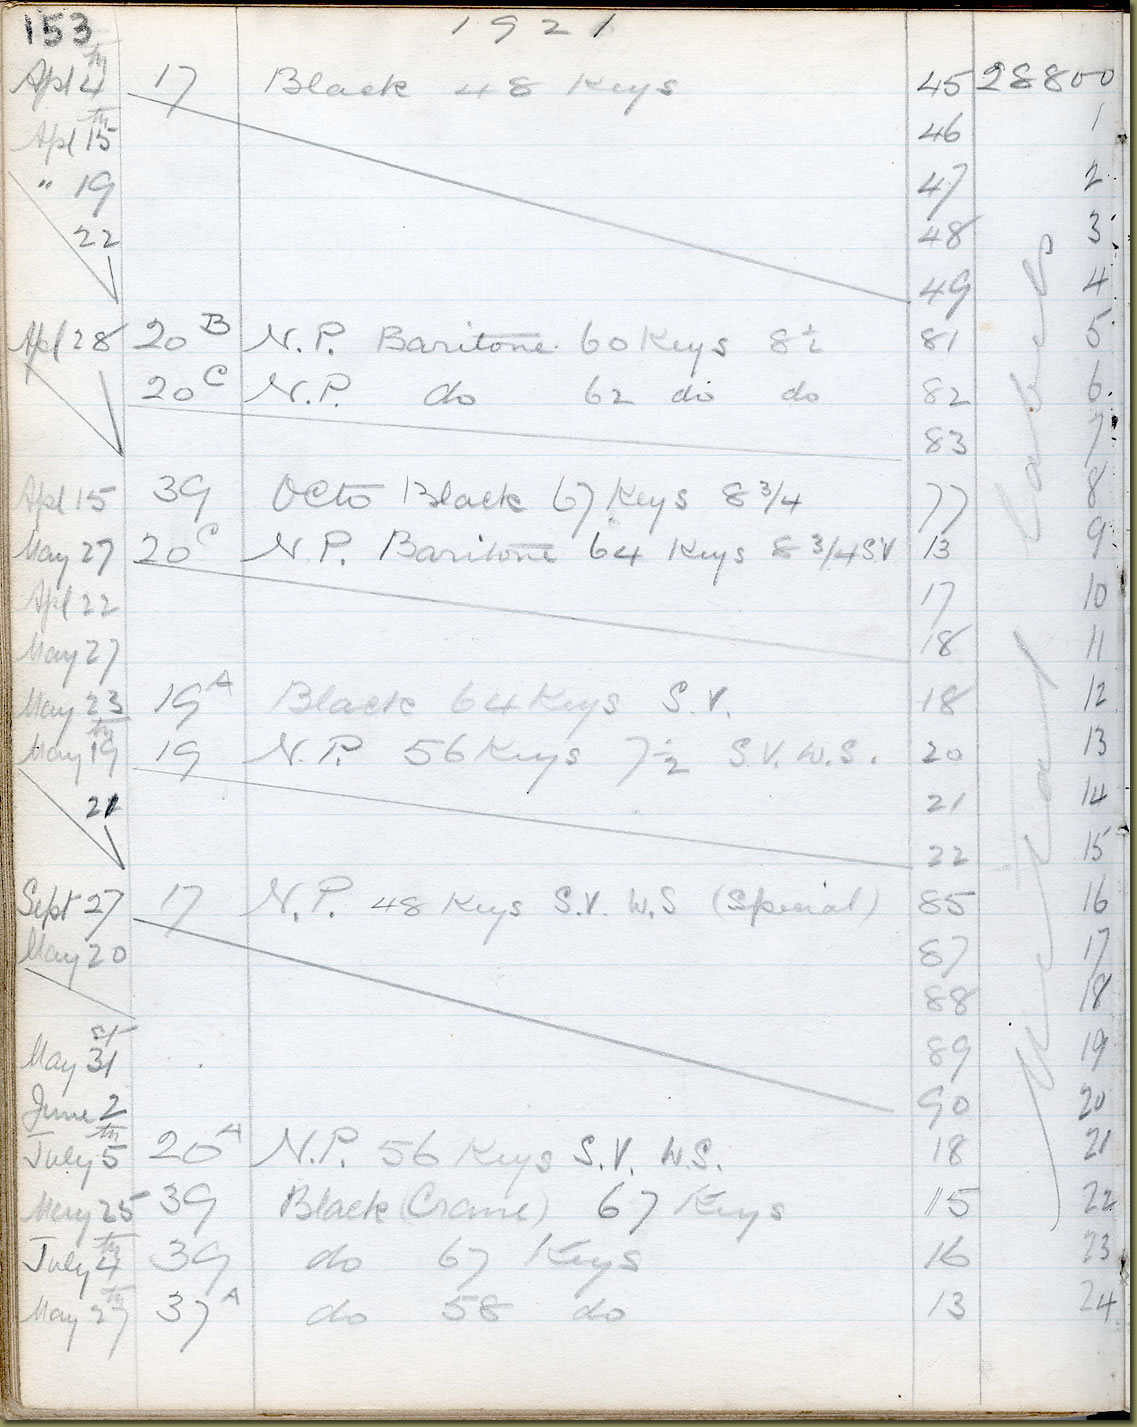 153 1921
Apl 4th 17 Black 48 Keys 45 28800
Apl 15th 46 1
" 19 47 2
22 48 3
49 4
Apl 28 20B N.P. Baritone 60 Keys 8½ 81 5
20C N.P. do 62 do do 82 6
83 7
Apl 15 39 Octo Black 67 Keys 8 3/4 77 8
May 27 20C N.P. Baritone 64 Keys 8 3/4 S.V 13 9
Apl 22 17 10
May 27 18 11
May 23 19A Black 64 Keys S.V. 18 12
May 19th 19 N.P. 56 Keys 7½ S.V. W.S. 20 13
21 21 14
22 15
Sept 27 17 N.P. 48 Keys S.V. W.S (Special) 85 16
May 20 87 17
88 18
May 31st 89 19
June 2 90 20
July 5th 20A N.P. 56 Keys S.V. W.S. 18 21
May 25 39 Black (Crane) 67 Keys 15 22
July 4th 39 do 67 Keys 16 23
May 27th 37A do 58 do 13 24